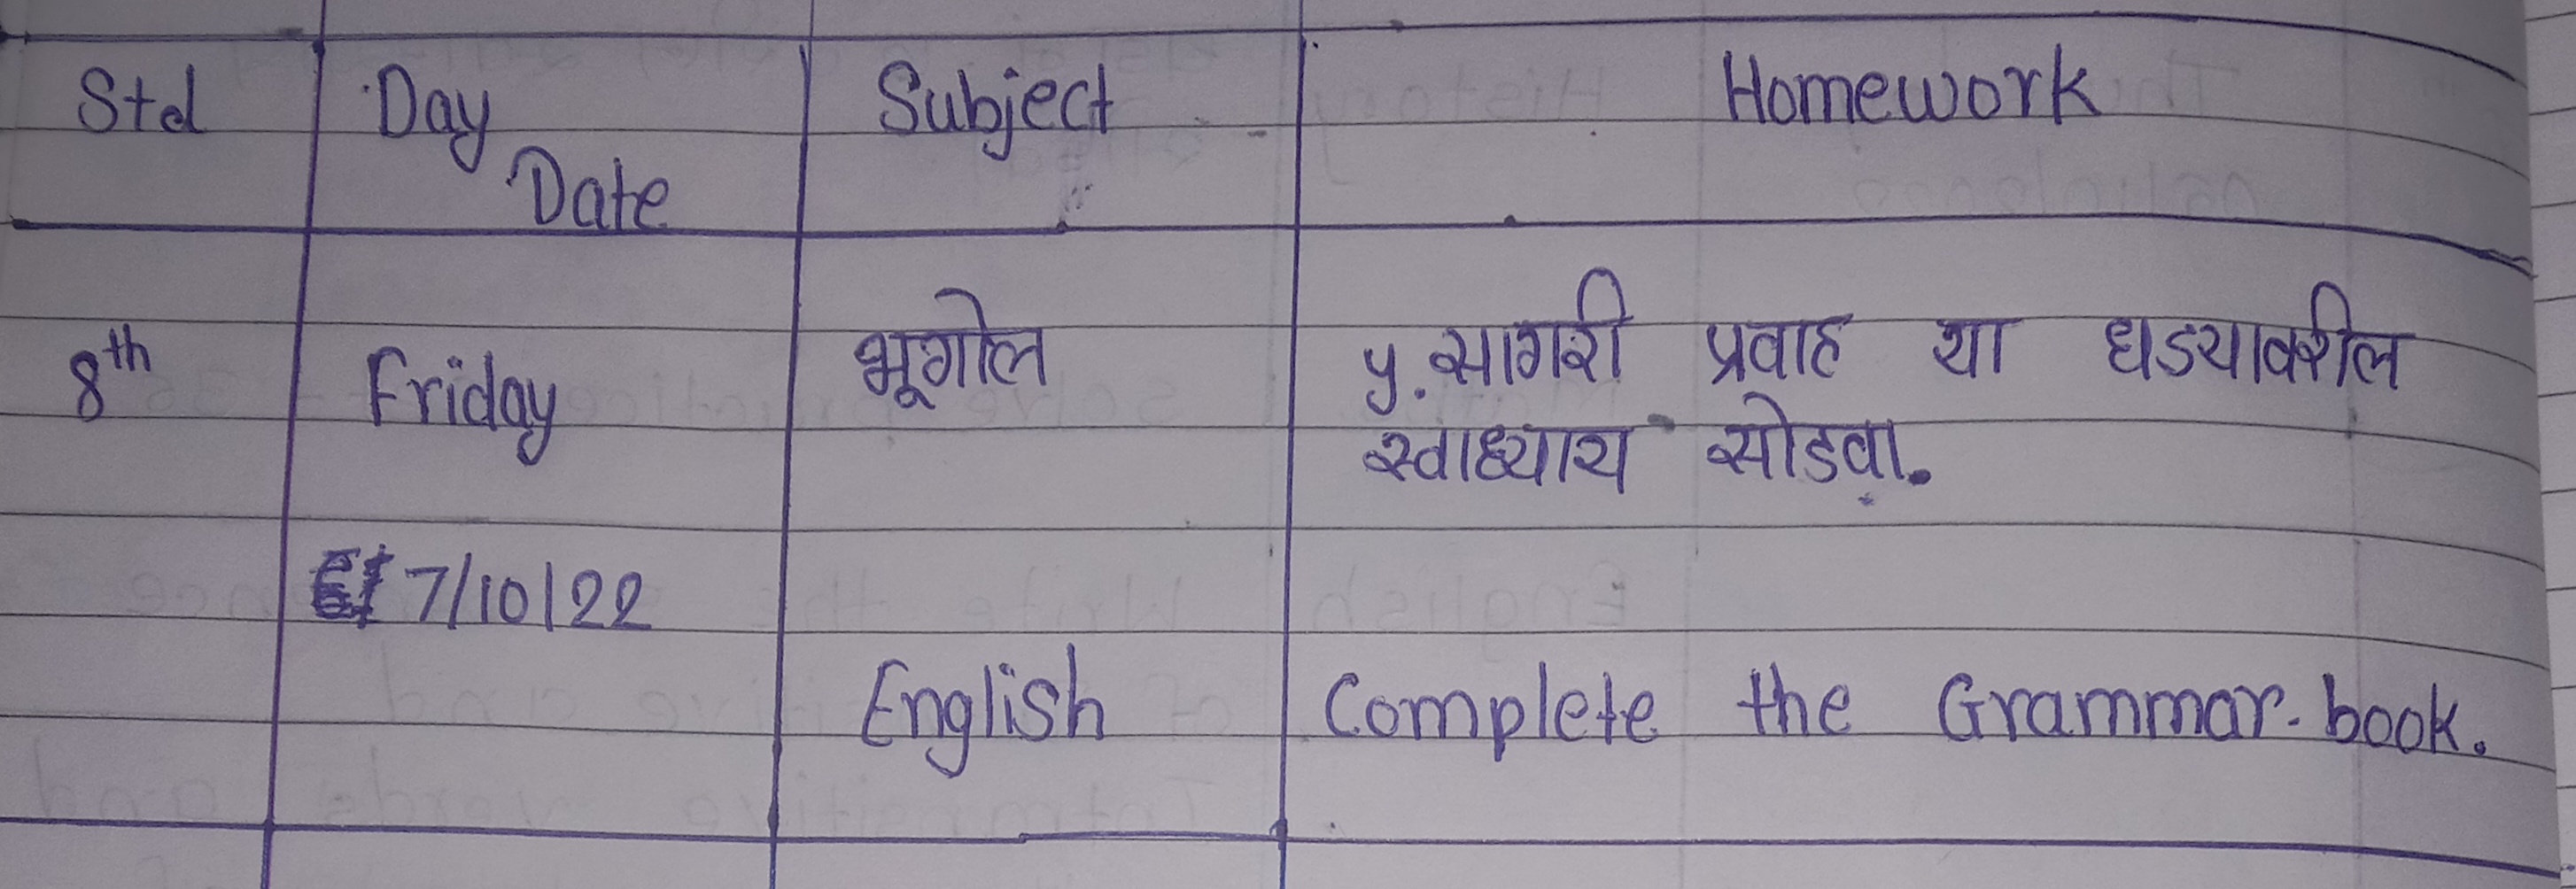 Std Day Subject Homework
Date
8th Friday भूगोल ५. सागरी प्रवाह या धड्यावरील
स्वाध्याय सोडवा.
7/10/22
English Complete the Grammar. book.